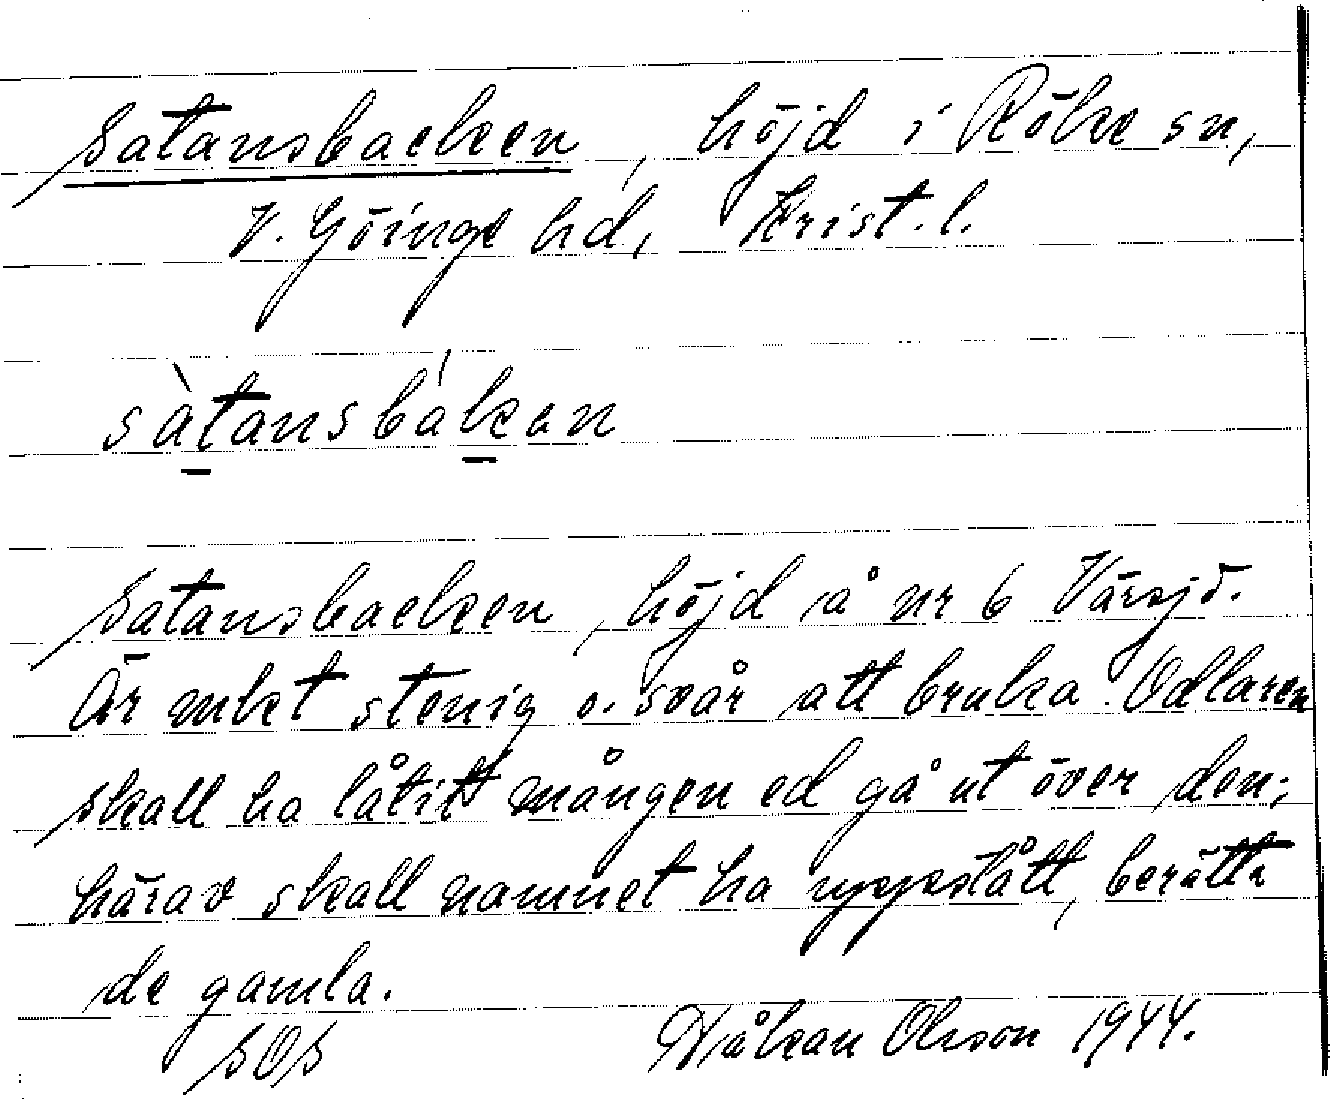 Satansbacken, höjd i Röke sn,
V. Göinge hd, Krist. l.
sàtansbákan
Satansbacken, höjd å nr 6 Värsjö.
Är mkt stenig o. svår att bruka. Odlaren
skall ha låtit mången ed gå ut över den;
härav skall namnet ha uppstått, berätta
de gamla.
SOS Håkan Olsson 1944.